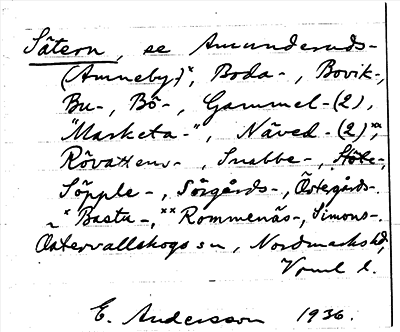 Sätern, se Amunderuds-
(Amneby-)ˣ, Boda-, Bovik-,
Bu-, Bö-, Gammel-(2),
"Marketa-", Näved-(2)ˣˣ,
Rövattens-, Snabbe-, Stöte-,
Söpple-, Sörgårds-, Östegårds-.
ˣ Basta-, ˣˣ Rommenäs-, Simons-.
Östervallskogs sn, Nordmarks hd,
Vrml l.
E. Andersson 1936.